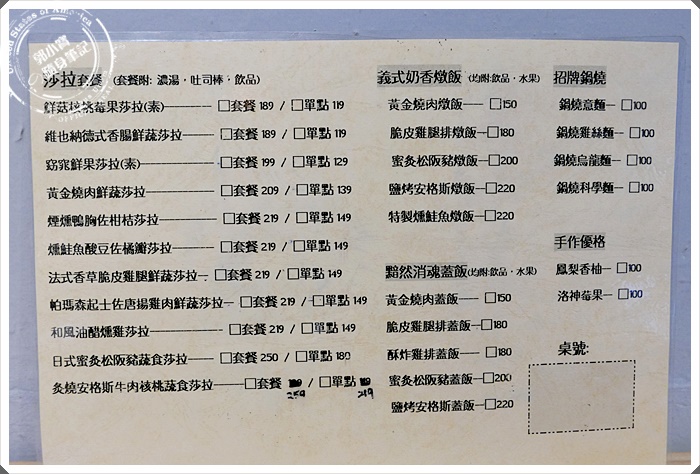 莎拉套餐 (套餐附: 濃湯，吐司棒，飲品)
鮮菇核桃莓果莎拉(素)———☐套餐 189 / ☐單點 119
維也納德式香腸鮮蔬莎拉——☐套餐 189 / ☐單點 119
窈窕鮮果莎拉(素)————☐套餐 199 / ☐單點 129
黃金燒肉鮮蔬莎拉————☐套餐 209 / ☐單點 139
煙燻鴨胸佐柑桔莎拉———☐套餐 219 / ☐單點 149
燻鮭魚酸豆佐橘瓣莎拉——☐套餐 219 / ☐單點 149
法式香草脆皮雞腿鮮蔬莎拉—☐套餐 219 / ☐單點 149
帕瑪森起士佐唐揚雞肉鮮蔬莎拉—☐套餐 219 / ☐單點 149
和風油醋燻雞莎拉————☐套餐 219 / ☐單點 149
日式蜜灸松阪豬蔬食莎拉——☐套餐 250 / ☐單點 180
灸燒安格斯牛肉核桃蔬食莎拉—☐套餐 259 / ☐單點 219
義式奶香燉飯 (均附:飲品，水果)
黃金燒肉燉飯—☐150
脆皮雞腿排燉飯—☐180
蜜灸松阪豬燉飯—☐200
鹽烤安格斯燉飯—☐220
特製燻鮭魚燉飯—☐220
黯然消魂蓋飯(均附:飲品，水果)
黃金燒肉蓋飯—☐150
脆皮雞腿排蓋飯—☐180
酥炸雞排蓋飯—☐180
蜜灸松阪豬蓋飯—☐200
鹽烤安格斯蓋飯—☐220
招牌鍋燒
鍋燒意麵—☐100
鍋燒雞絲麵—☐100
鍋燒烏龍麵—☐100
鍋燒科學麵—☐100
手作優格
鳳梨香柚—☐100
洛神莓果—☐100
桌號:
郭小寶
隨身筆記